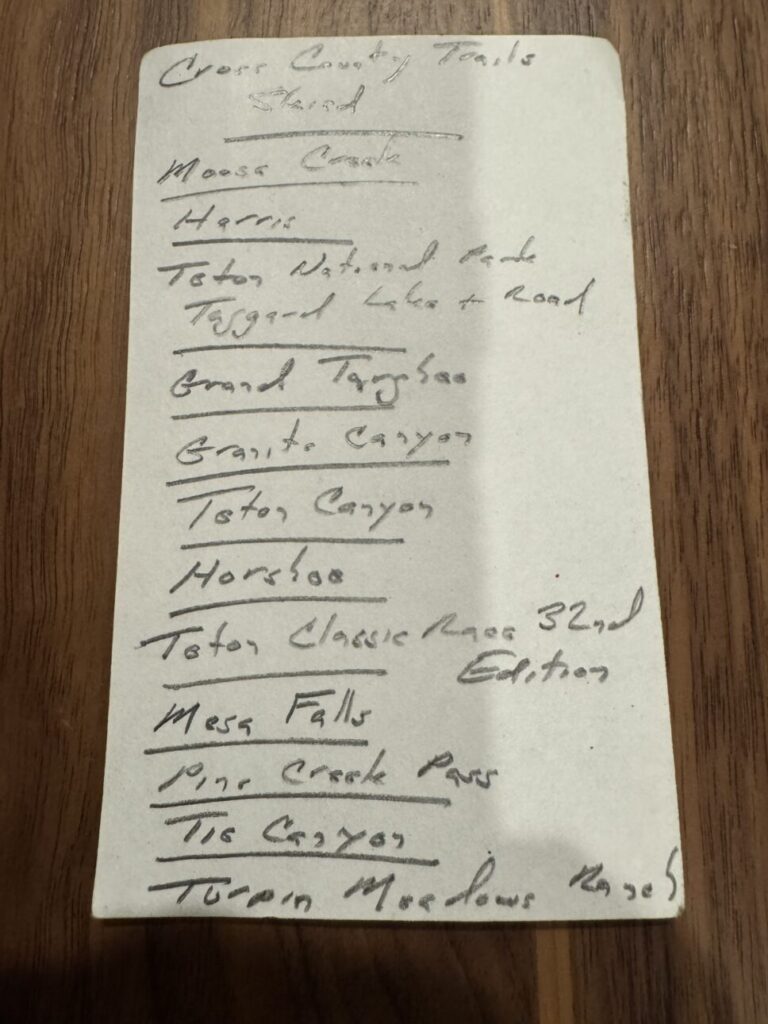 Cross County Trails
Skied
Moose Creek
Harris
Teton National Park
Taggard Lake + Road
Grand Targhee
Granite Canyon
Teton Canyon
Horshoe
Teton Classic Race 32nd
Edition
Mesa Falls
Pine Creek Pass
Tie Canyon
Turpin Meadows Ranch